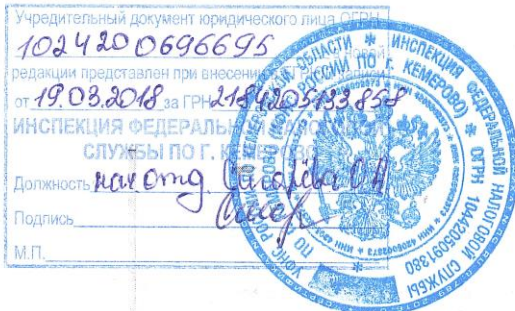 Учредительный документ юридического лица ОГРН
1024200696695 в новой
редакции представлен при внесении в ЕГРЮЛ записи
от 19.03.2018 за ГРН 2184205133858
ИНСПЕКЦИЯ ФЕДЕРАЛЬНОЙ НАЛОГОВОЙ
СЛУЖБЫ ПО Г. КЕМЕРОВО
Должность нач отд
Подпись
М.П.
ИНСПЕКЦИЯ ФЕДЕРАЛЬНОЙ НАЛОГОВОЙ СЛУЖБЫ
ОГРН 1044205091380
РОССИИ ПО Г. КЕМЕРОВО